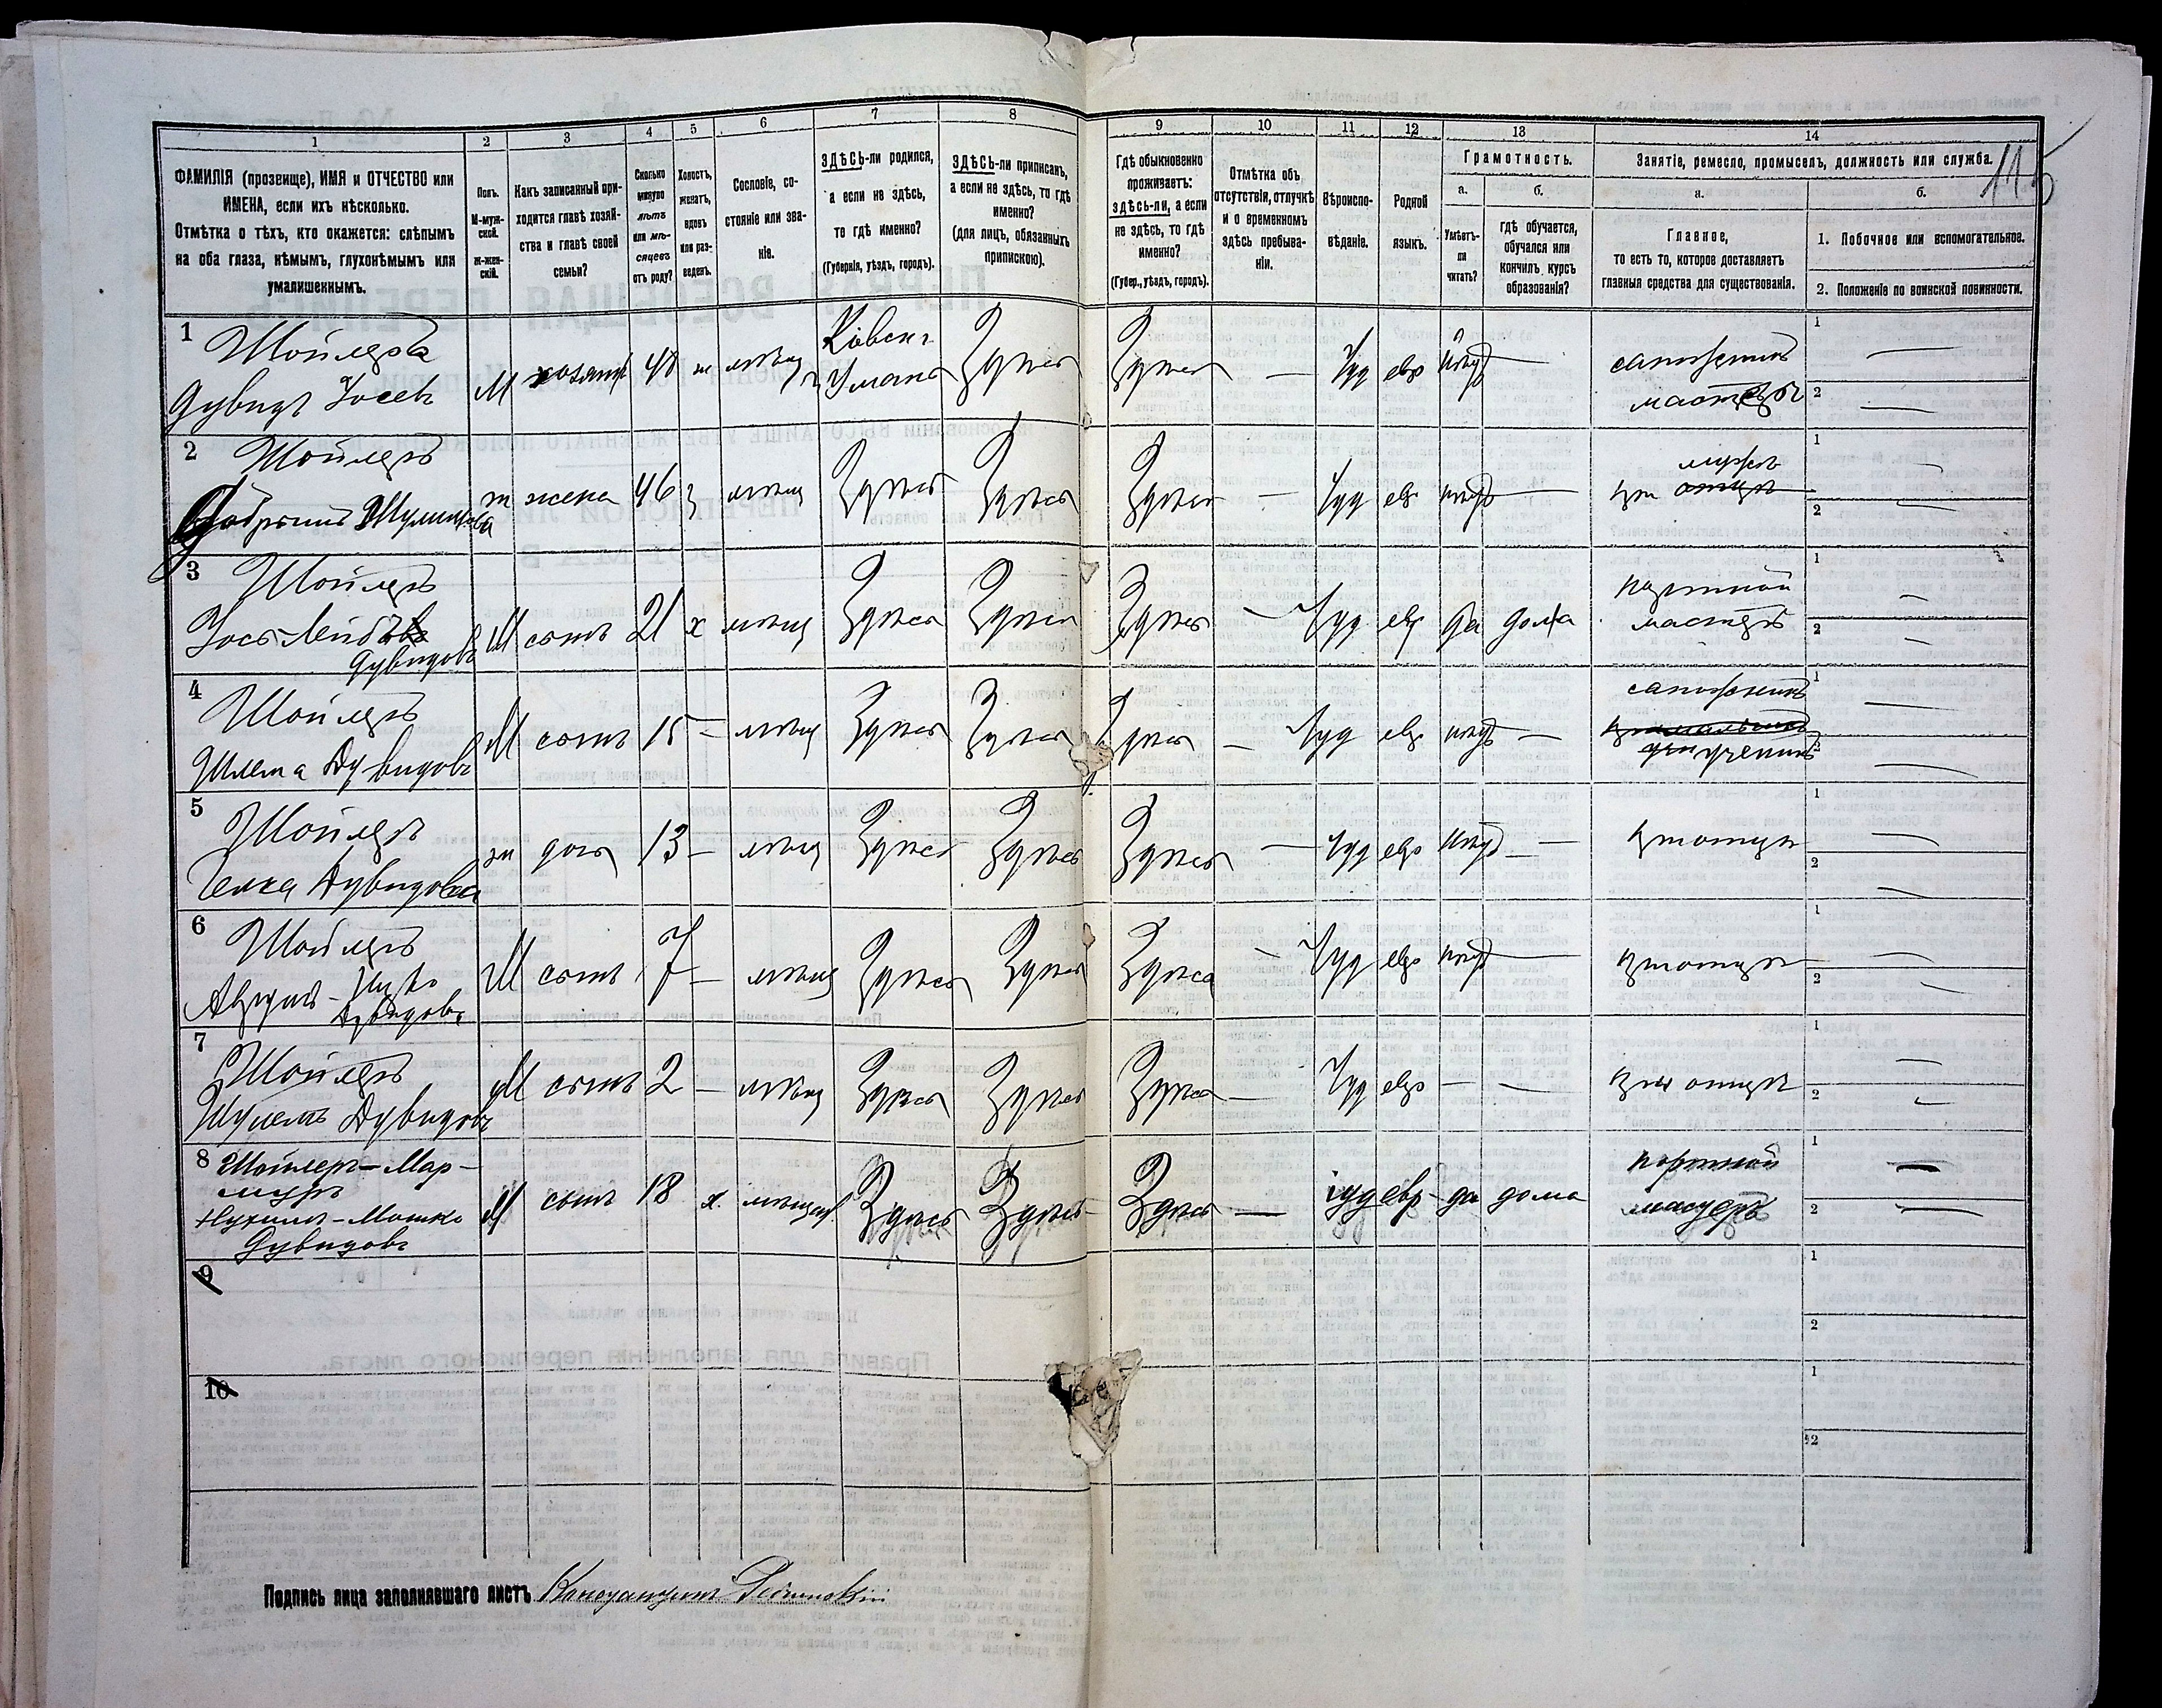 1 2 3 4 5 6 7 8 9 10 11 12 13 14
115
ФАМИЛІЯ (прозвище), ИМЯ и ОТЧЕСТВО или
ИМЕНА, если ихъ нѣсколько.
Отмѣтка о тѣхъ, кто окажется: слѣпымъ
на оба глаза, нѣмымъ, глухонѣмымъ или
умалишеннымъ.
Полъ.
М-муж-
ской.
Ж-жен-
скій.
Какъ записанный при-
ходится главѣ хозяй-
ства и главѣ своей
семьи?
Сколько
минуло
лѣтъ
или мѣ-
сяцевъ
отъ роду?
Холостъ,
женатъ,
вдовъ
или раз-
веденъ.
Сословіе, со-
стояніе или зва-
ніе.
ЗДѢСЬ-ли родился,
а если не здѣсь,
то гдѣ именно?
(Губернія, уѣздъ, городъ).
ЗДѢСЬ-ли приписанъ,
а если не здѣсь, то гдѣ
именно?
(для лицъ, обязанныхъ
припискою).
Гдѣ обыкновенно
проживаетъ:
здѣсь-ли, а если
не здѣсь, то гдѣ
именно?
(Губер., уѣздъ, городъ).
Отмѣтка объ
отсутствіи, отлучкѣ
и о временномъ
здѣсь пребыва-
ніи.
Вѣроиспо-
вѣданіе.
Родной
языкъ.
Грамотность.
а. б.
Умѣетъ-
ли
читать?
гдѣ обучается,
обучался или
кончилъ курсъ
образованія?
Занятіе, ремесло, промыселъ, должность или служба.
а. б.
Главное,
то есть то, которое доставляетъ
главныя средства для существованія.
1. Побочное или вспомогательное.
2. Положеніе по воинской повинности.
1 Шойлеръ
Дувидъ Іосевъ
М хозяинъ 48 ж мѣщ
Кіевск г Умань
Здѣсь Здѣсь — Іуд евр нѣтъ —
сапожникъ
мастеръ
1 —
2 —
2 Шойлеръ
ж жена 46 з мѣщ Здѣсь Здѣсь Здѣсь — Іуд ев нѣтъ —
мужѣ
при отцѣ
1 —
2 —
3 Шойлеръ
Іось-Лейба
Дувидовъ
М сынъ 21 х мѣщ Здѣсь Здѣсь Здѣсь — Іуд евр да дома
портной
мастеръ
1 —
2 —
4 Шойлеръ
Шлема Дувидовъ
М сынъ 15 — мѣщ Здѣсь Здѣсь Здѣсь — Іуд евр нѣтъ —
сапожникъ
ученикъ
1 —
2 —
5 Шойлеръ
Дувидова
ж дочь 13 — мѣщ Здѣсь Здѣсь Здѣсь — Іуд евр нѣтъ —
при отцѣ
1 —
2 —
6 Шойлеръ
Дувидовъ
М сынъ 7 — мѣщ Здѣсь Здѣсь Здѣсь — Іуд евр нѣтъ —
при отцѣ
1 —
2 —
7 Шойлеръ
Шулемъ Дувидовъ
М сынъ 2 — мѣщ Здѣсь Здѣсь Здѣсь — Іуд евр — —
при отцѣ
1 —
2 —
8 Шойлеръ-Мар-
Нухимъ-Мошко
Дувидовъ
М сынъ 18 х. мѣщан. Здѣсь Здѣсь Здѣсь — іуд евр да дома
портной
мастеръ
1 —
2 —
9
1
2
10
1
2
Подпись лица заполнявшаго листъ Константинъ